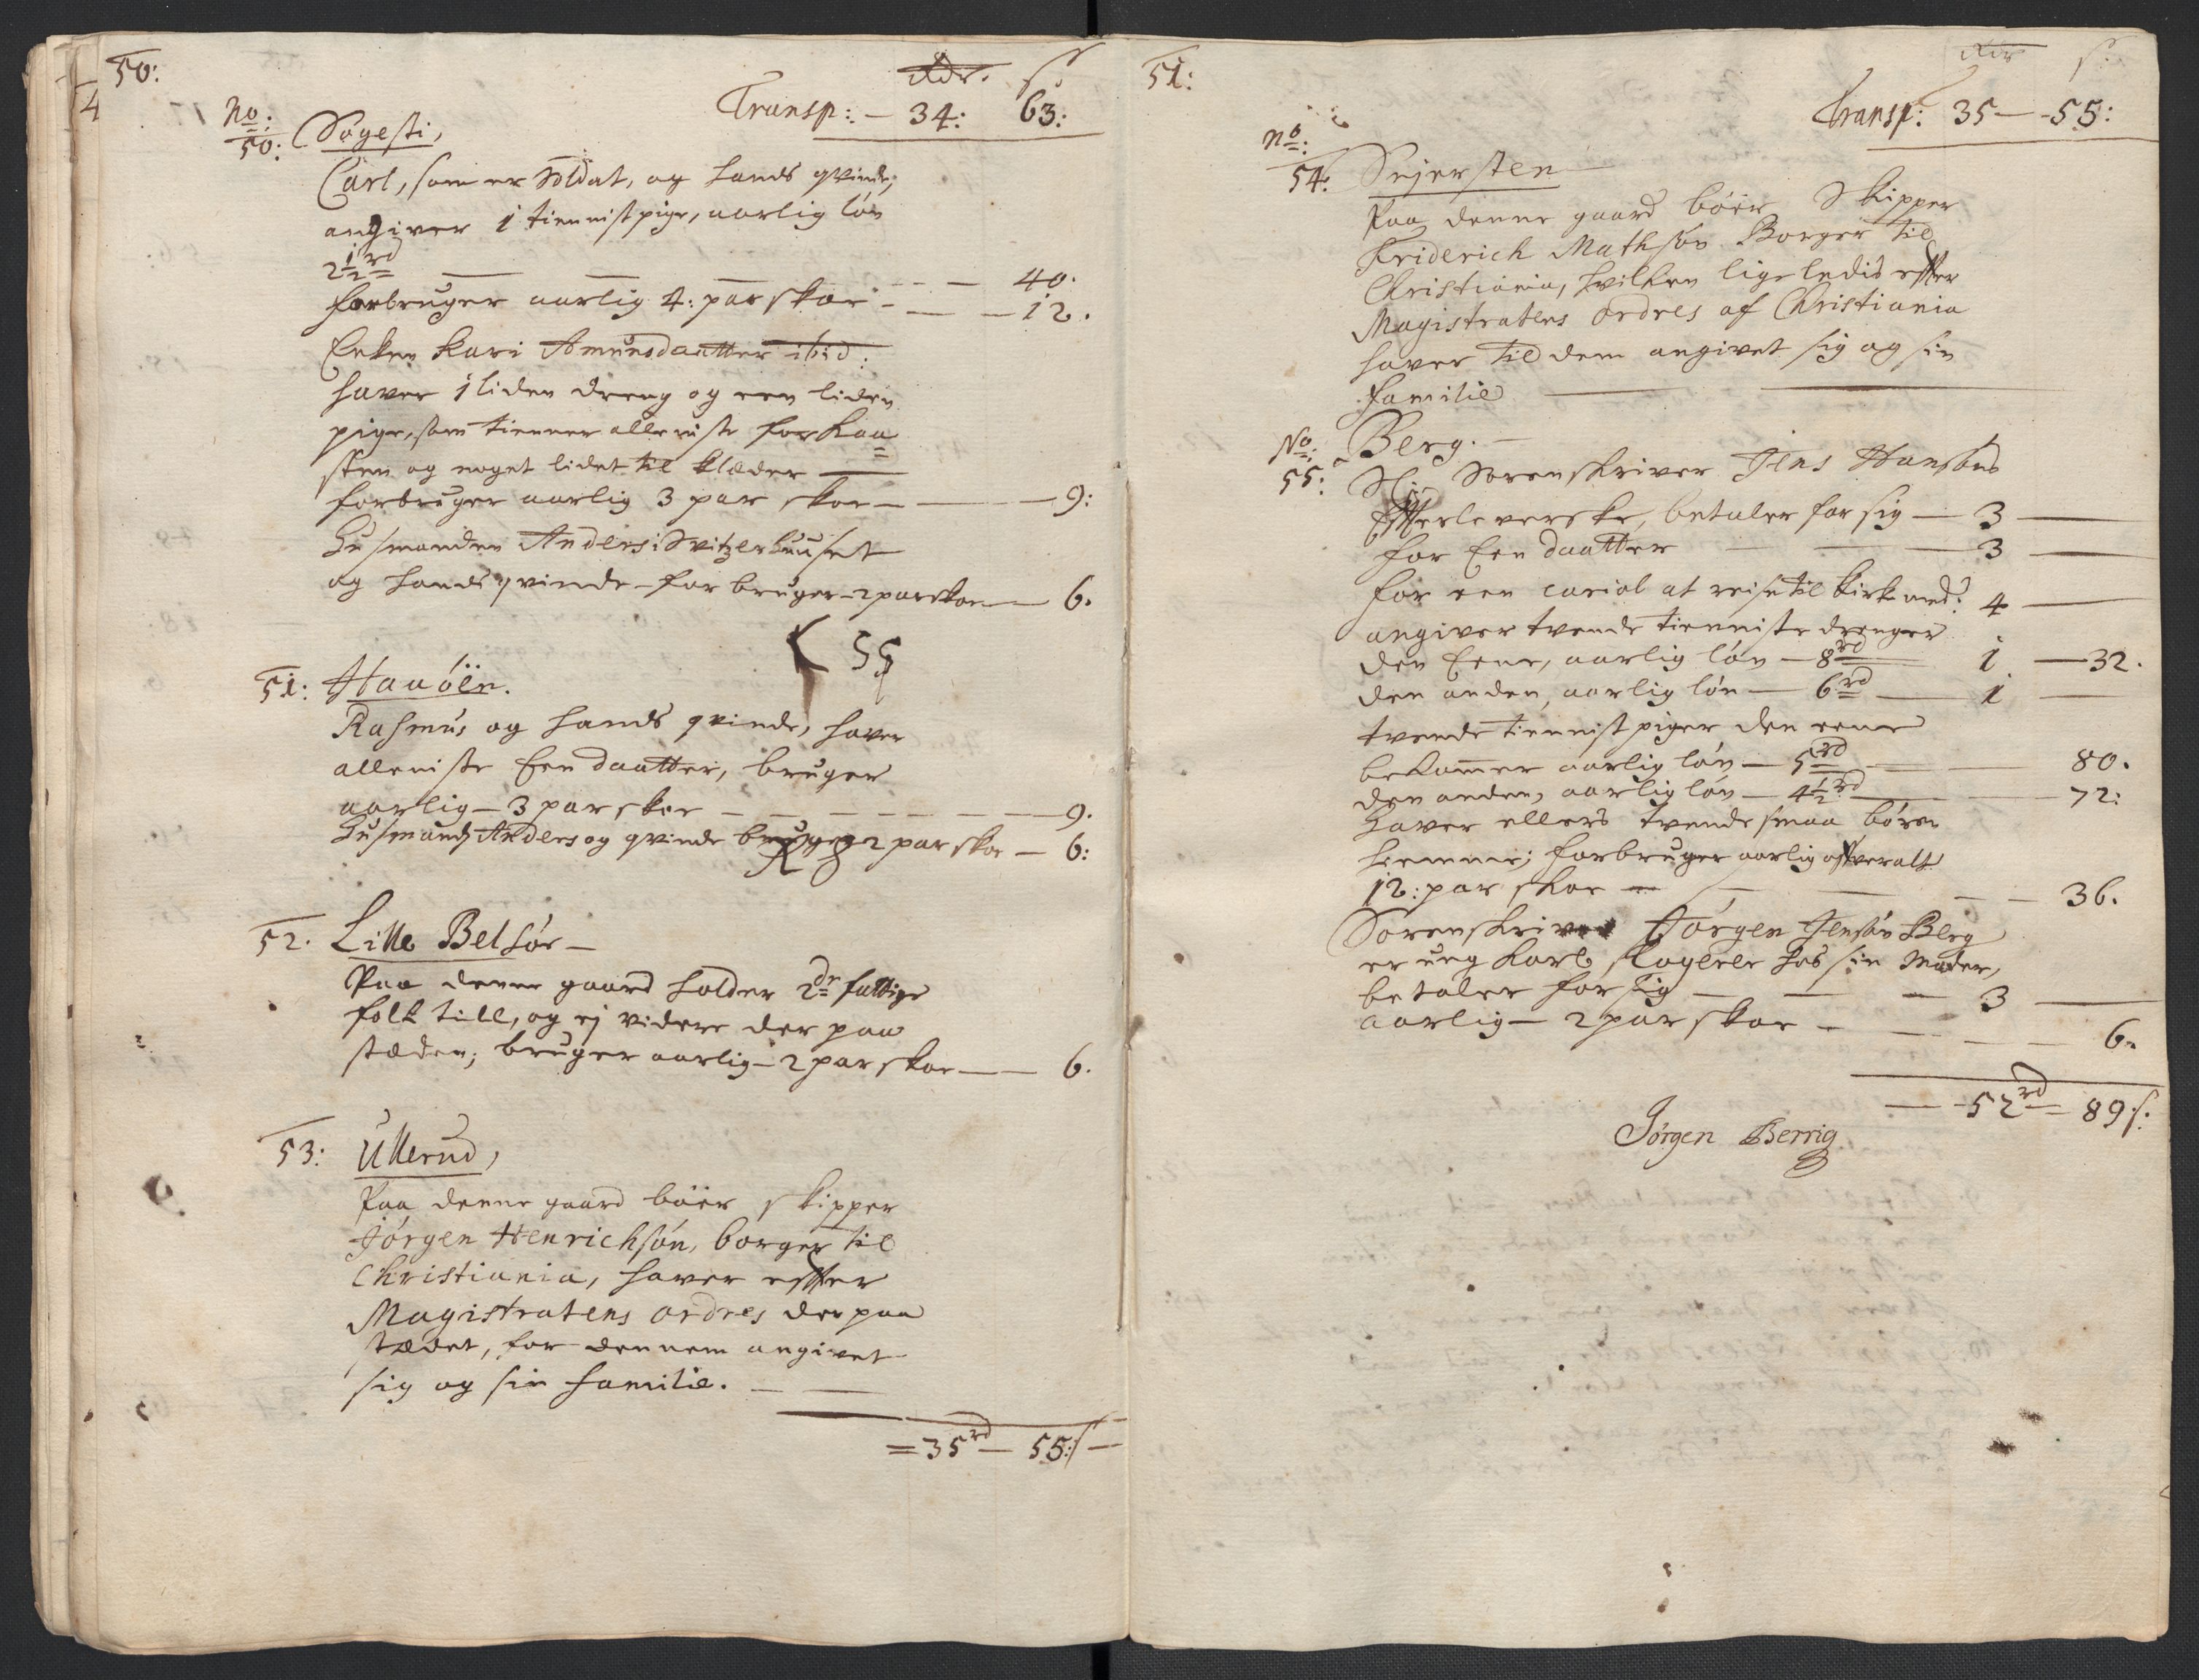 50:
4
Rdr. s.
Transp: — 34: 63:
No:
50: Sogesti,
Carl, som er soldat, og hands qvinde,
angiver 1 tiennistpige, aarlig løn
2½ rd — — — — 40.
forbruger aarlig 4: par skoe — — — 12.
Enken Kari Amunsdaatter ibid:
haver 1 liden dreng og een liden
pige, som tienner alleniste for Kaa=
sten og noget lidet til klæder —
forbruger aarlig 3 par skoe — — 9:
Huusmanden Anders i Svitzerhuuset
og hands qvinde — forbruger — 2 par skoe — 6.
55
51: Haaöen.
Rasmus og hands qvinde, haver
alleniste Een daatter, bruger
aarlig — 3 par skoe — — — — — 9.
Huusmand Anders og qvinde bruger 2 par skoe — 6:
52. Lille Belhör —
Paa denne gaard holder 2de fattige
folk till, og ej videre der paa
stæden; bruger aarlig — 2 par skoe — 6.
53: Ullerud,
Paa denne gaard böer skipper
Jörgen Henrichsön, borger til
Christiania, haver effter
Magistratens ordres der paa
stædet, for dennem angivet
sig og sin familie. — —
= 35 rd — 55: s —
51:
Rdr s:
Transp: 35 — 55:
No:
54: Sejersten
Paa denne gaard böer Skipper
Friderich Mathsön Borger til
Christiania, hvilken ligeledis effter
Magistratens ordres af Christiania
haver til dem angivet sig og sin
familie —
No: Berg. —
55: Sl: Sorenskriver Jens Hansöns
Effterleverske, betaler for sig — 3 —
for Een daatter — — — 3 —
for een cariol at reise til kirke med: 4 —
angiver tvende tienniste drenger
den Eene, aarlig løn — 8 rd — 1 — 32.
den anden, aarlig løn — 6 rd — 1 —
tvende tiennist piger den eene
bekommer aarlig løn — 5 rd — — 80.
den anden, aarlig løn — 4½ rd — — 72:
Haver ellers tvende smaa børn
hiemme; forbruger aarlig offveralt
12: par skoe — — — — 36.
Sorenskriver Jörgen Jensön Berg
er ung Karl, logerer hos sin Moder,
betaler for sig — — — 3 —
aarlig — 2 par skoe — — — — 6.
— 52 rd = 89 s:
Jörgen Berrig